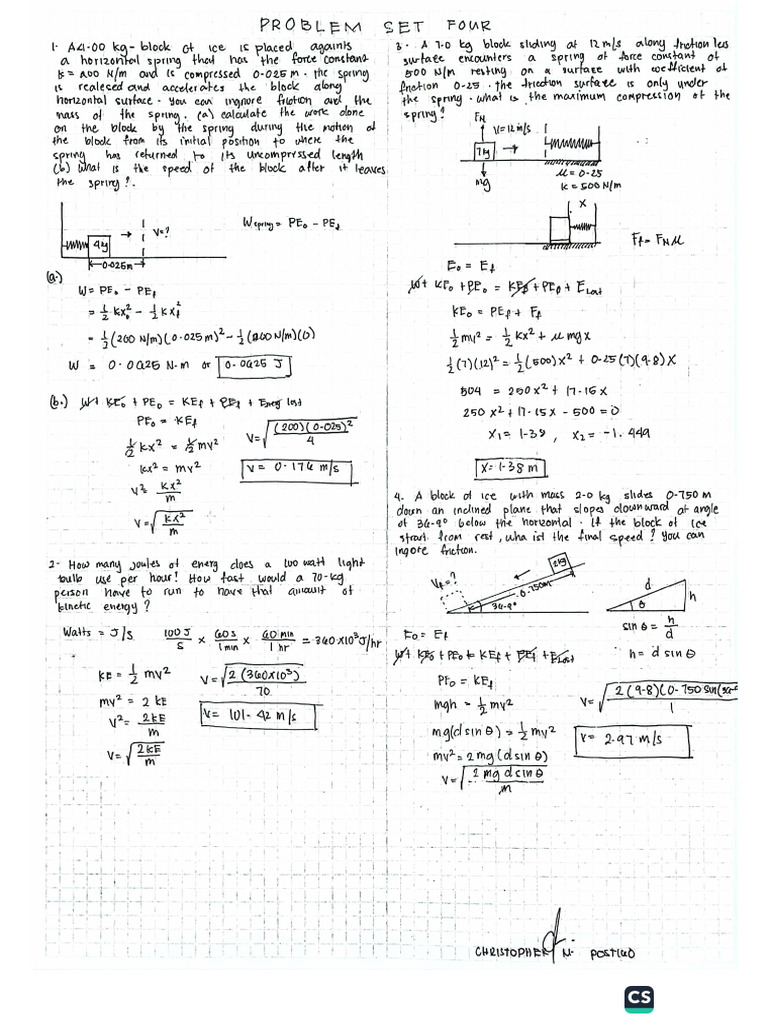 PROBLEM SET FOUR
1. A 4.00 kg-block of ice is placed againts
a horizontal spring that has the force constant
k = 200 N/m and is compressed 0.025 m. the spring
is realesed and accelerates the block along
horizontal surface. You can ingnore friction and the
mass of the spring. (a) calculate the work done
on the block by the spring during the motion of
the block from its initial position to where the
spring has returned to its uncompressed length
(b) what is the speed of the block after it leaves
the spring?.
4kg
V=?
0.025m
W spring = PE₀ - PEf
(a.)
W = PE₀ - PEf
= 1/2 kx₀² - 1/2 kxf²
= 1/2 (200 N/m)(0.025 m)² - 1/2 (200 N/m)(0)
W = 0.0625 N.m or 0.0625 J
(b.) W + KE₀ + PE₀ = KEf + PEf + Energ lost
PE₀ = KEf
1/2 kx² = 1/2 mv²
kx² = mv²
v² = kx²/m
v = √(kx²/m)
V = √((200)(0.025)²/4)
V = 0.176 m/s
2- How many joules of energ does a 100 watt light
bulb use per hour? How fast would a 70-kg
person have to run to have that amount of
kinetic energy?
Watts = J/s 100J/s × 60s/1min × 60min/1hr = 360×10³J/hr
KE = 1/2 mv²
mv² = 2 KE
V² = 2KE/m
V = √(2KE/m)
V = √(2(360×10³)/70)
V = 101.42 m/s
3. A 7.0 kg block sliding at 12 m/s along friction less
surface encounters a spring of force constant of
500 N/m resting on a surface with coefficient of
friction 0.25. the friction surface is only under
the spring. what is the maximum compression of the
spring?
FN
V=12m/s
7kg
mg
μ = 0.25
k = 500 N/m
x
Ff = FN μ
E₀ = Ef
W + KE₀ + PE₀ = KEf + PEf + E Lost
KE₀ = PEf + Ff
1/2 mv² = 1/2 kx² + μ mgx
1/2 (7)(12)² = 1/2 (500)x² + 0.25(7)(9.8)X
504 = 250x² + 17.15x
250x² + 17.15x - 500 = 0
X₁ = 1.38 , X₂ = -1.449
X = 1.38 m
4. A block of ice with mass 2.0 kg slides 0.750 m
down an inclined plane that slopes downward at angle
of 36.9° below the horizontal. If the block of ice
strart from rest, wha ist the final speed? You can
ingore friction.
Vf = ?
2kg
0.750m
36.9°
d
h
θ
sin θ = h/d
h = d sin θ
E₀ = Ef
W + KE₀ + PE₀ = KEf + PEf + E Lost
PE₀ = KEf
mgh = 1/2 mv²
mg(d sin θ) = 1/2 mv²
mv² = 2mg(d sin θ)
V = √(2 mg d sin θ/m)
V = √(2(9.8)(0.750 sin(36.9/1
V = 2.97 m/s
CHRISTOPHER N. POSTIGO
CS